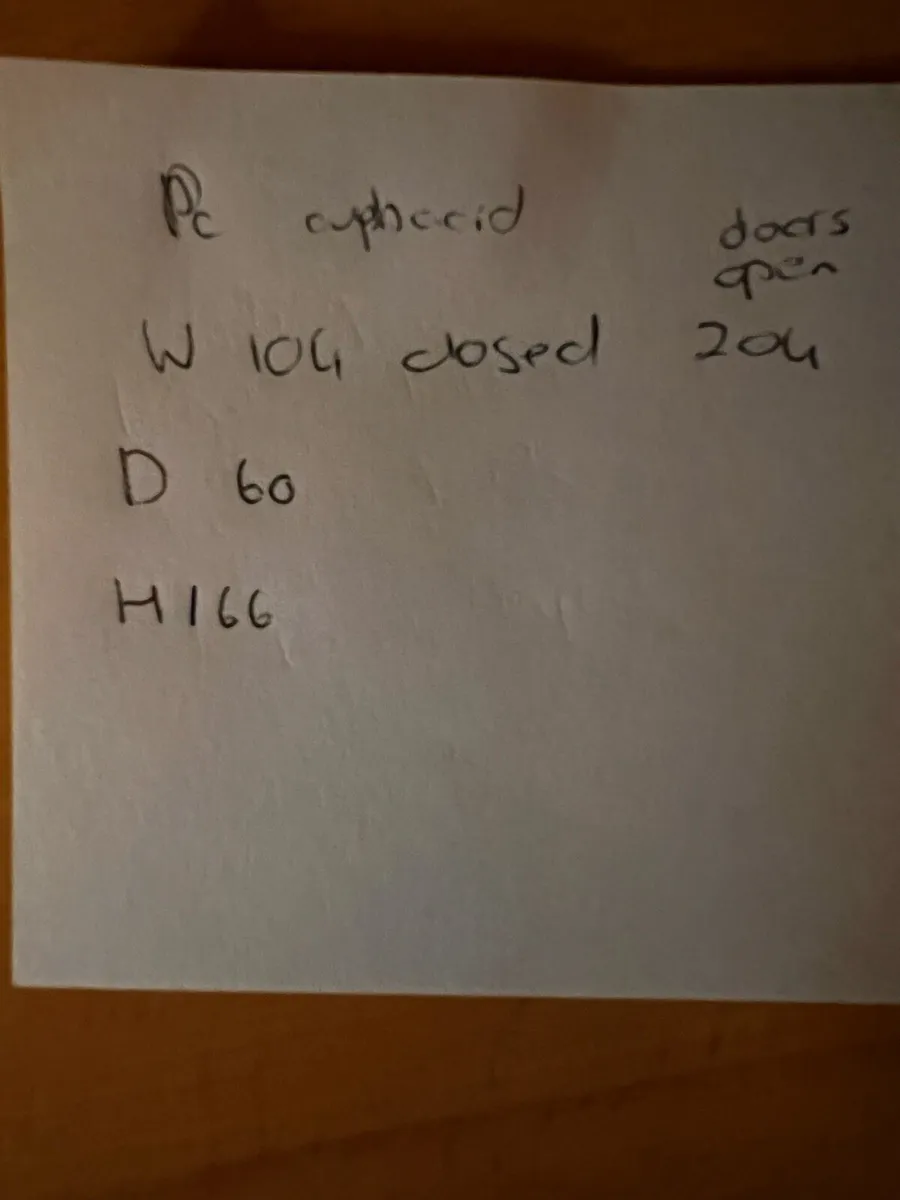 Pc cupboard doors
open
W 104 closed 204
D 60
H 166